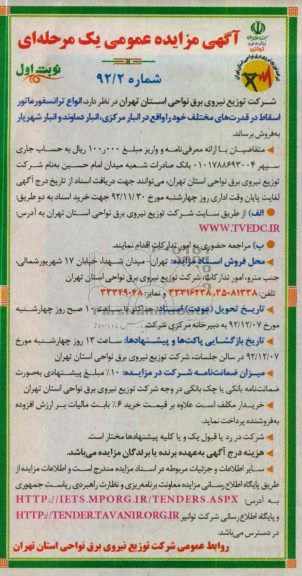 آگهی مزایده عمومی یک مرحله‌ای
شماره ۹۲/۲
نوبت اول
شرکت توزیع نیروی برق نواحی استان تهران در نظر دارد، انواع ترانسفورماتور
اسقاط در قدرت‌های مختلف خود را واقع در انبار مرکزی، انبار دماوند و انبار شهریار
به‌فروش برساند.
متقاضیان با ارائه معرفی‌نامه و واریز مبلغ ۱۰۰,۰۰۰ ریال به حساب جاری
سپهر ۰۱۰۱۷۸۸۶۹۳۰۰۴ بانک صادرات شعبه میدان امام حسین به‌نام شرکت
توزیع نیروی برق نواحی استان تهران، می‌توانند جهت دریافت اسناد از تاریخ درج آگهی
لغایت پایان وقت اداری روز چهارشنبه مورخ ۹۲/۱۱/۳۰ جهت خرید اسناد به دو طریق:
الف) از طریق سایت شرکت توزیع نیروی برق نواحی استان تهران به آدرس:
WWW.TVEDC.IR
ب) مراجعه حضوری به امور تدارکات اقدام نمایند.
محل فروش اسناد مزایده: تهران، میدان شهدا، خیابان ۱۷ شهریورشمالی،
جنب مترو، امور تدارکات شرکت توزیع نیروی برق نواحی استان تهران
تلفن: ۳۵۰۸۱۳۳۸، ۳۳۳۱۶۲۳۸ و نمابر: ۳۳۳۴۹۰۴۸
تاریخ تحویل (عودت) اسناد: حداکثر تا ساعت ۱۰ صبح روز چهارشنبه
مورخ ۹۲/۱۲/۰۷ به دبیرخانه مرکزی شرکت
تاریخ بازگشایی پاکت‌ها و پیشنهادها: ساعت ۱۳ روز چهارشنبه مورخ
۹۲/۱۲/۰۷ در سالن جلسات، شرکت توزیع نیروی برق نواحی استان تهران
میزان ضمانت‌نامه شرکت در مزایده: ۱۰٪ مبلغ پیشنهادی به‌صورت
ضمانت‌نامه بانکی یا چک بانکی در وجه شرکت توزیع نیروی برق نواحی استان تهران
خریدار مکلف است علاوه بر قیمت خرید ۶٪ بابت مالیات بر ارزش افزوده
به‌فروشنده پرداخت نماید.
شرکت در رد یا قبول یک و یا کلیه پیشنهادها مختار است.
هزینه درج آگهی به‌عهده برنده یا برندگان مزایده می‌باشد.
سایر اطلاعات و جزئیات مربوطه در اسناد مزایده مندرج است و اطلاعات مزایده از
طریق پایگاه اطلاع رسانی مزایده معاونت برنامه‌ریزی و نظارت راهبردی ریاست جمهوری
به آدرس: HTTP://IETS.MPORG.IR/TENDERS.ASPX
و پایگاه اطلاع رسانی شرکت توانیر HTTP://TENDER.TAVANIR.ORG.IR
در دسترس می‌باشد.
روابط عمومی شرکت توزیع نیروی برق نواحی استان تهران